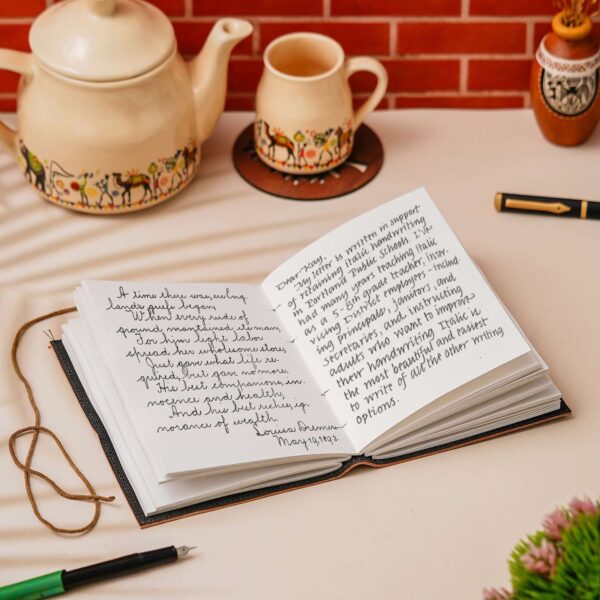 A time there was, ere Eng
lands griefs began,
When every rude of
ground maintained its man,
For him light labor
spread her wholesome store,
Just gave what life re
quired, but gave no more,
His best companions, in-
nocence and health,
And his best riches, ig-
norance of wealth.
Louisa
May 19, 1892.
Dear Kay,
My letter is written in support
of retaining italic handwriting
in Portland Public Schools. I've
had many years teaching Italic
as a 5-8th grade teacher, inser-
vicing District employers - includ
ing principals, janitors, and
secretaries, and instructing
adults who want to improve
their handwriting Italic is
the most beautiful and easiest
to write of all the other writing
options.